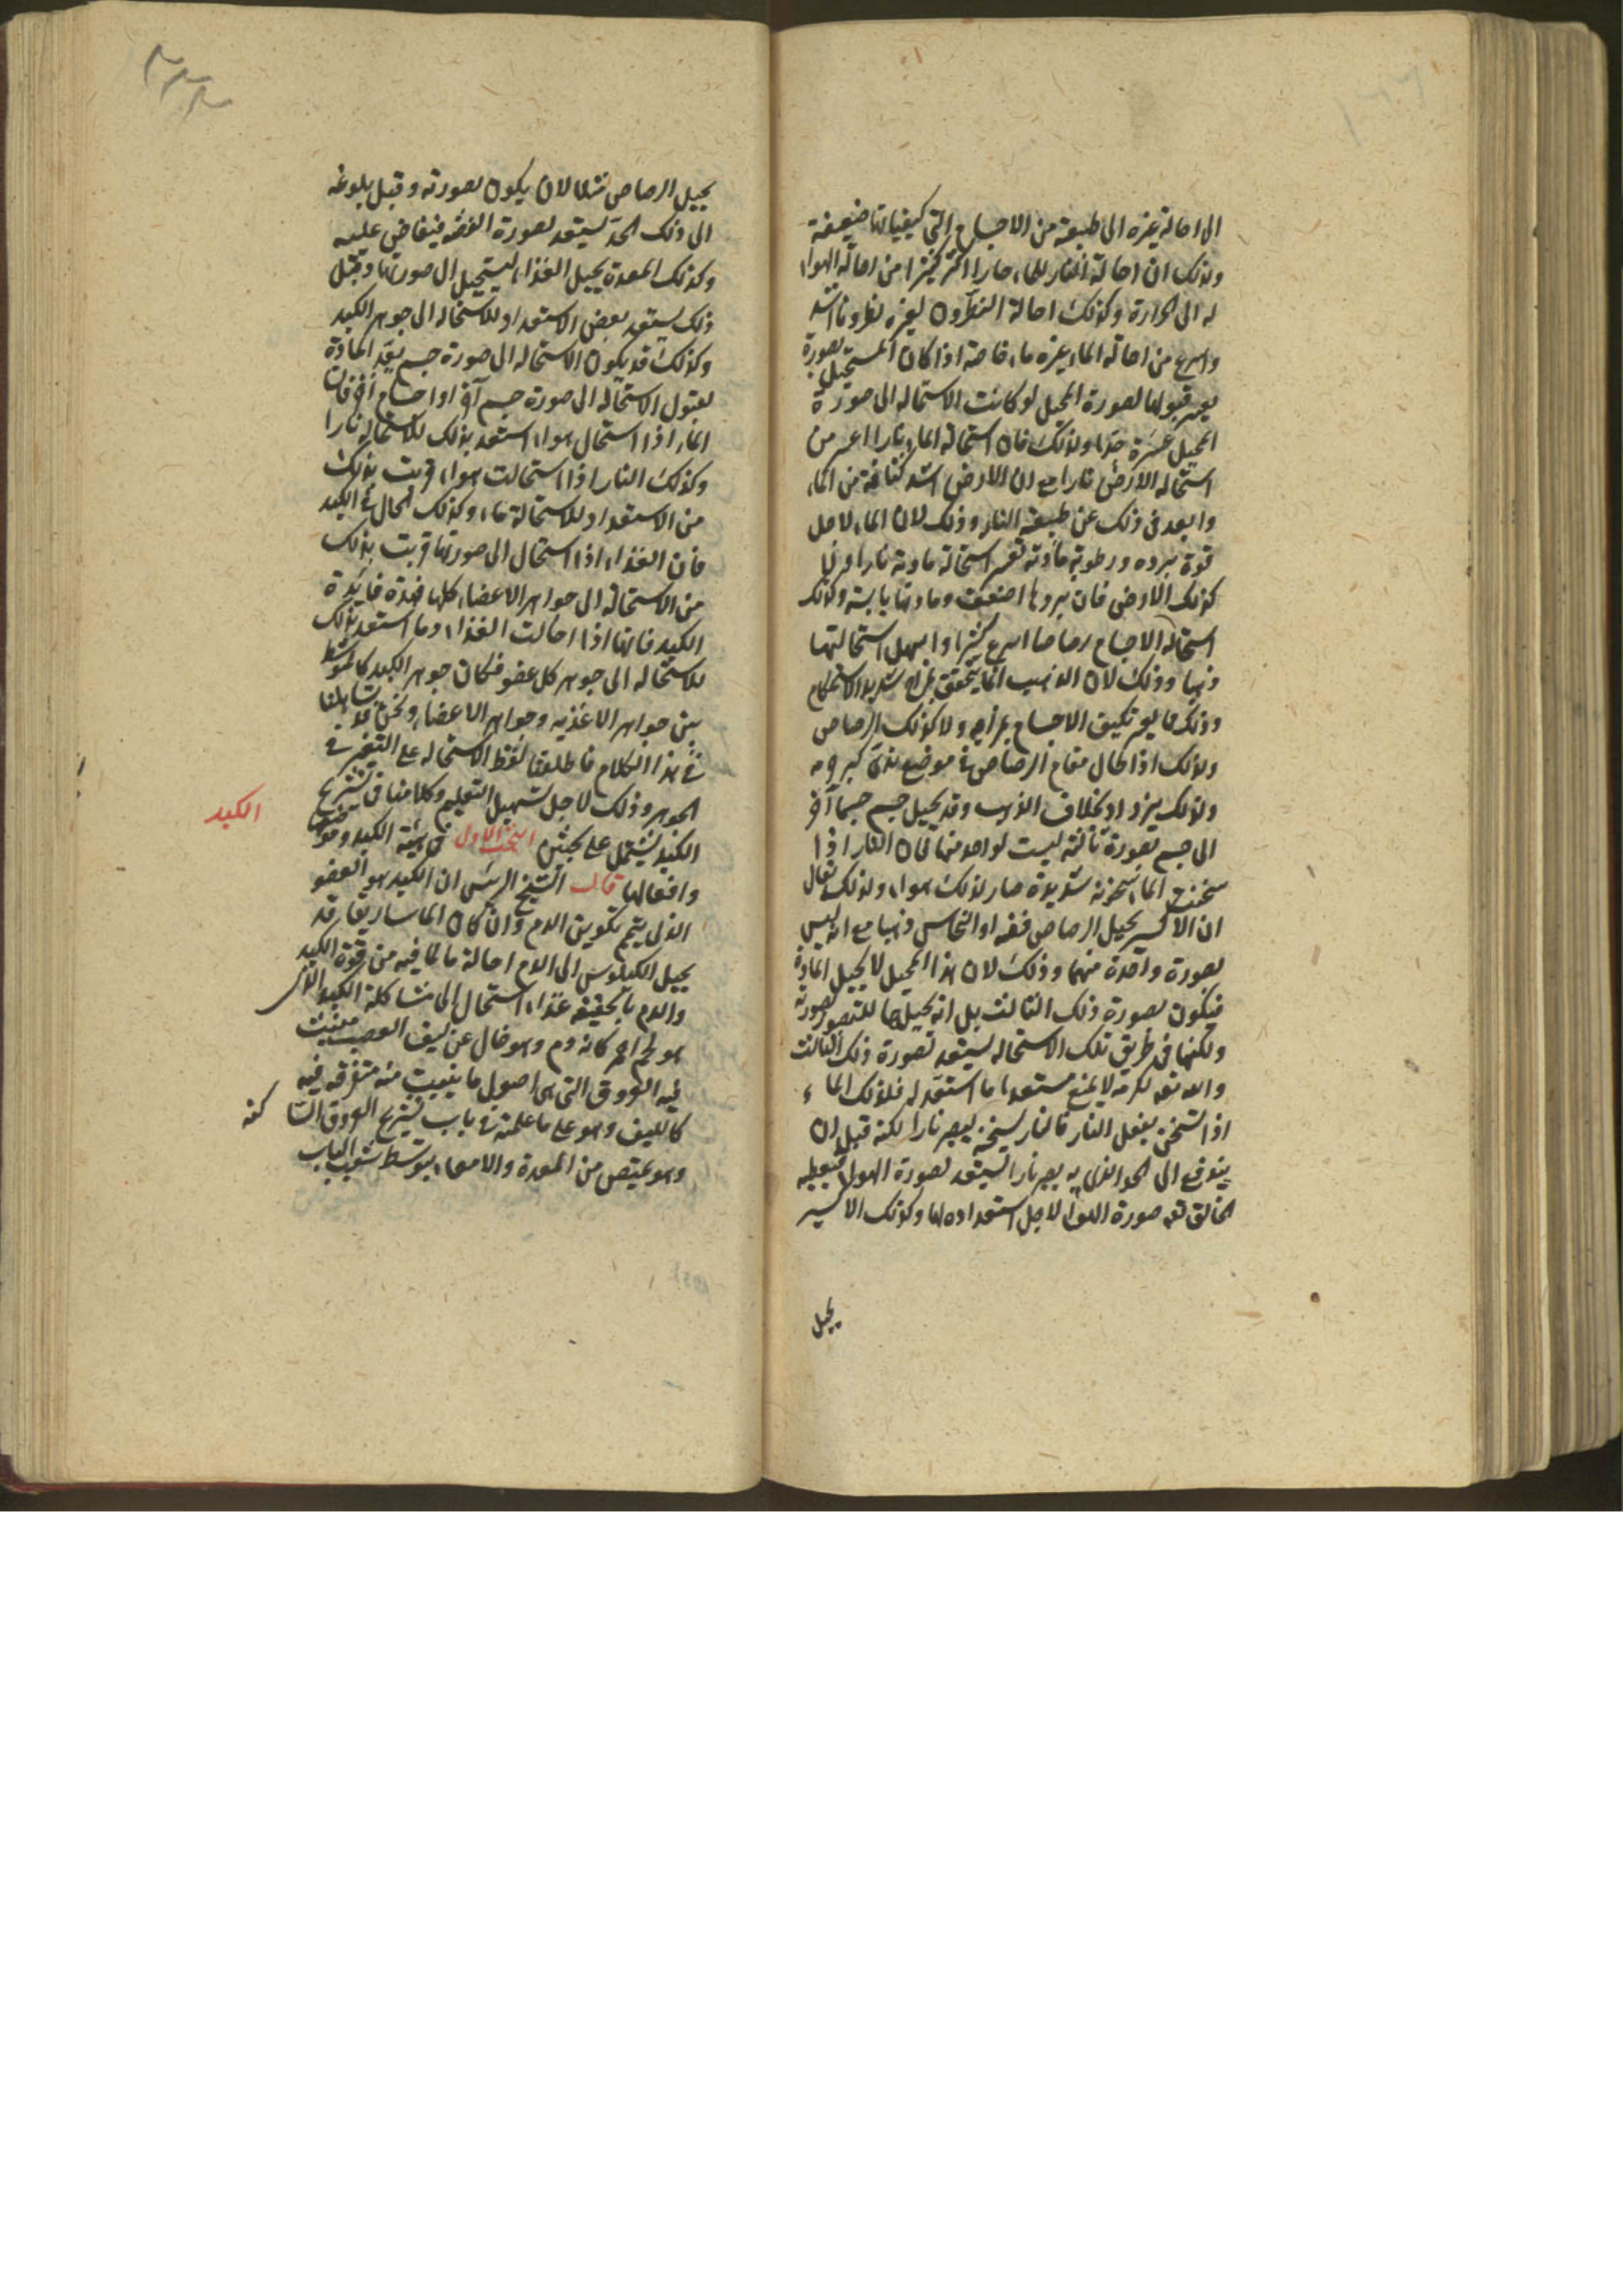 الى احالة غيره الى طبيعته من الاجسام التي كيفياتها ضعيفة
ولذلك ان احالة النار للماء حارا اكثر كثيرا من احالة الهواء
له الى الحرارة وكذلك احالة النطرون لغيره نطرونا اشد
واسرع من احالة الماء غيره ماء خاصة اذا كان المستحيل بصورة
يعسر قبولها لصورة المحيل لو كانت الاستحالة الى صورة
المحيل عسرة جدا ولذلك فان استحالة الماء نارا اعسر من
استحالة الارض نارا مع ان الارض اشد كثافة من الماء
وابعد في ذلك عن طبيعة النار وذلك لان الماء لاجل
قوة برده ورطوبة مادته تعسر استحالة مادته نارا ولا
كذلك الارض فان بردها اضعف ومادتها يابسة وكذلك
استحالة الاجسام رصاصا اسرع كثيرا واسهل استحالتها
ذهبا وذلك لان الذهب انما يتحقق بمزاج شديد الاستحكام
وذلك مما يعسر تكيف الاجسام بمزاجه ولا كذلك الرصاص
ولذلك اذا طال مقام الرصاص في موضع ندى كبر جرمه
ولذلك يزداد بخلاف الذهب وقد يحيل جسم جسما آخر
الى جسم بصورة ثالثة ليست لواحد منهما فان النار اذا
سخنت الماء سخونة شديدة صار لذلك هواء ولذلك يقال
ان الاكسير يحيل الرصاص فضة او النحاس ذهبا مع انه ليس
بصورة واحدة منهما وذلك لان هذا المحيل لا يحيل المادة
فتكون بصورة ذلك الثالث بل انه يحيلها للتصور بصورته
ولكنها في طريق تلك الاستحالة يستعد لصورة ذلك الثالث
والله تعه لكرمه لا يمنع مستعدا ما استعد له فلذلك الماء
اذا تسخن بفعل النار فالنار تسخنه ليصير نارا لكنه قبل ان
ينتهى الى الحد الذي به يصير نارا يستعد لصورة الهواء فيعطيه
الخالق تعه صورة الهواء لاجل استعداده لها وكذلك الاكسير
يحيل
يحيل الرصاص مثلا لان يكون بصورته وقبل بلوغه
الى ذلك الحد يستعد لصورة الفضه فيفاض عليه
وكذلك المعدة يحيل الغذاء ليستحيل الى صورتها وقبل
ذلك يستعد بعض الاستعداد للاستحالة الى جوهر الكبد
وكذلك قد يكون الاستحالة الى صورة جسم يعد المادة
لقبول الاستحالة الى صورة جسم آخر او اجسام اخر فان
الماء اذا استحال هواء استعد بذلك للاستحالة نارا
وكذلك النار اذا استحالت هواء قربت بذلك
من الاستعداد للاستحالة ماء وكذلك الحال في الكبد
فان الغذاء اذا استحال الى صورتها قربت بذلك
من الاستحالة الى جواهر الاعضاء كلها فهذه فايدة
الكبد فانها اذا احالت الغذاء دما استعد بذلك
للاستحالة الى جوهر كل عضو فكان جوهر الكبد كالمتوسط
بين جواهر الاغذيه وجواهر الاعضاء ونحن قد تساهلنا
في هذا الكلام فاطلقنا لفظ الاستحاله على التغير في
الجوهر وذلك لاجل تسهيل التعليم وكلامنا في تشريح
الكبد يشتمل على بحثين البحث الاول في هيئة الكبد وموضعها
الكبد
وافعالها قال الشيخ الرئيس ان الكبد هو العضو
الذي يتم تكوين الدم وان كان الماساريقا قد
يحيل الكيلوس الى الدم احالة ما لما فيه من قوة الكبد
والدم بالحقيقه غذاء استحال الى مشاكلة الكبد التي
هو لحم احمر كانه دم وهو خال عن ليف العصب منبث
فيه العروق التي هي اصول ما ينبت منه متفرقه فيه
كالليف وهو على ما علمته في باب تشريح العروق السا كنه
وهو يمتص من المعدة والامعاء بتوسط شعب الباب